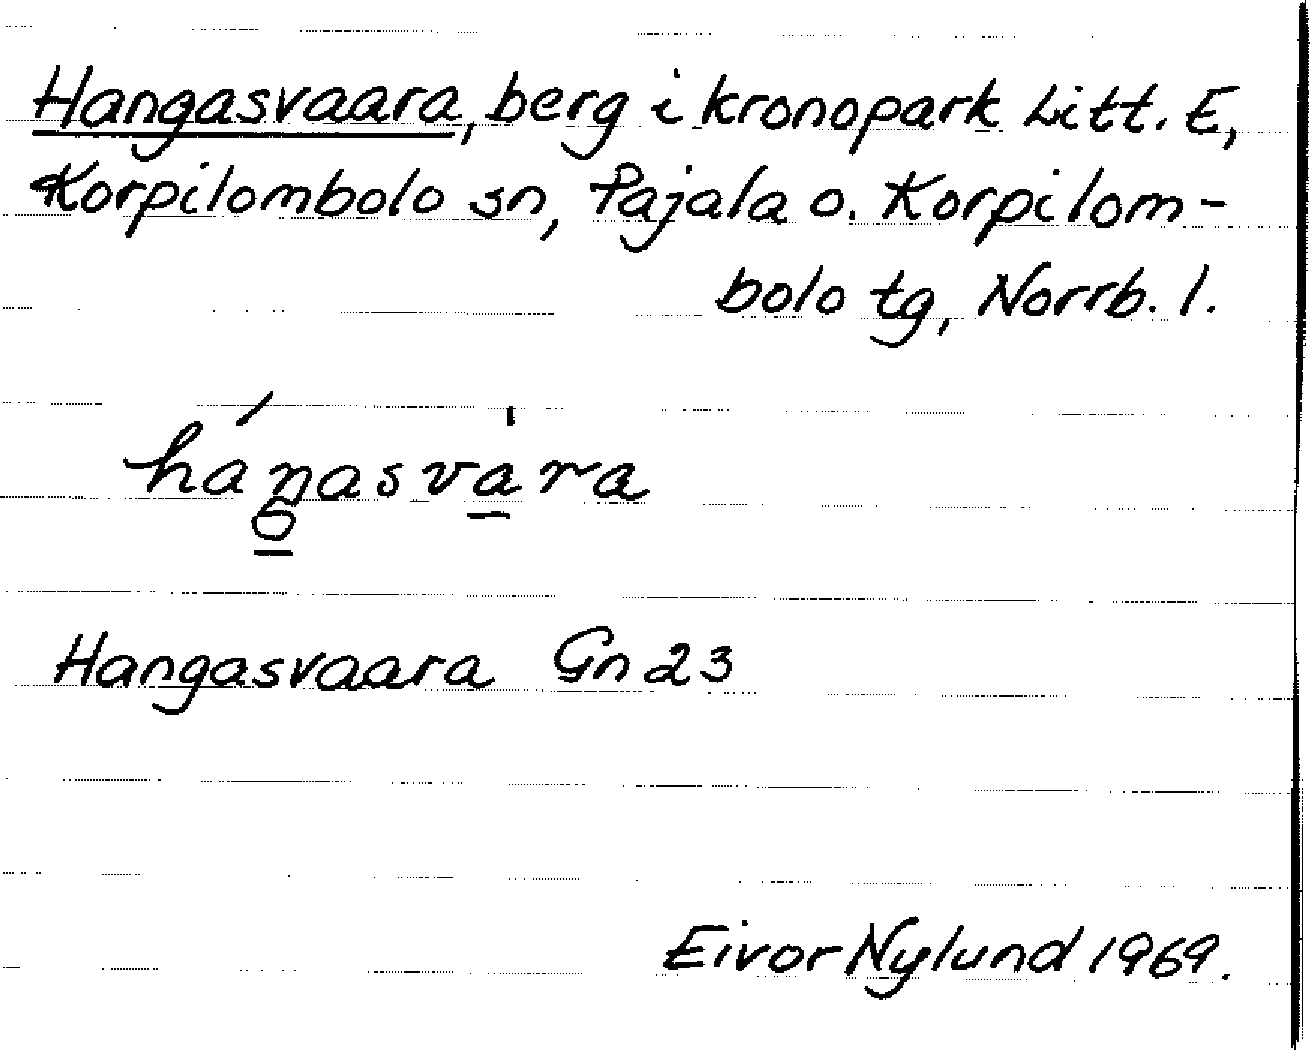 Hangasvaara, berg i kronopark Litt. E,
Korpilombolo sn, Pajala o. Korpilom-
bolo tg, Norrb. l.
háŋ̱asva̱̍ra
Hangasvaara Gn 23
Eivor Nylund 1969.